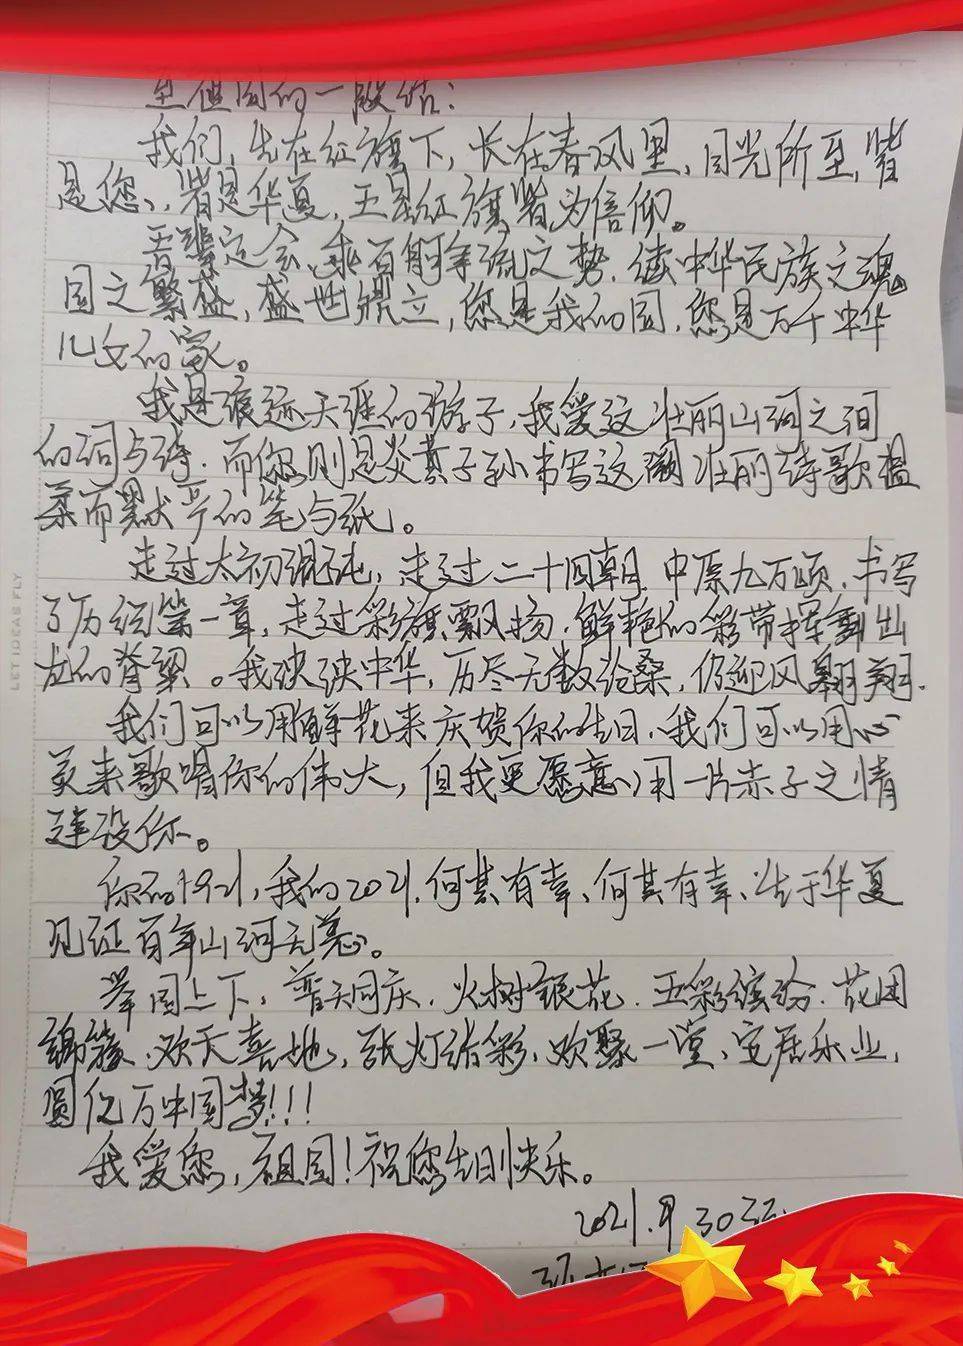 祖国的一段话：
我们，生在红旗下，长在春风里，目光所至，皆
是您、皆是华夏，五星红旗皆为信仰。
吾辈定会乘百舸争流之势，续中华民族之魂。
国之繁盛，盛世鼎立，您是我们的国，您是万千中华
儿女的家。
我是浪迹天涯的游子，我爱这壮丽山河之间
的词与诗，而您则是炎黄子孙书写这阕壮丽诗歌温
柔而默 的笔与纸。
走过太初混沌，走过二十四朝，中原九万顷，书写
了历经第一章，走过彩旗飘扬，鲜艳的彩带挥舞出
龙的脊梁。我泱泱中华，历尽无数沧桑，仍迎风翱翔.
我们可以用鲜花来庆贺你的生日，我们可以用心
灵来歌唱你的伟大，但我更愿意用一片赤子之情
建设你。
你的1921，我的2021，何其有幸、何其有幸、生于华夏
见证百年山河无恙。
举国上下，普天同庆，火树银花，五彩缤纷，花团
锦簇，欢天喜地，张灯结彩，欢聚一堂、安居乐业，
圆亿万中国梦!!!
我爱您，祖国！祝您生日快乐。
2021.9.30
LET IDEAS FLY